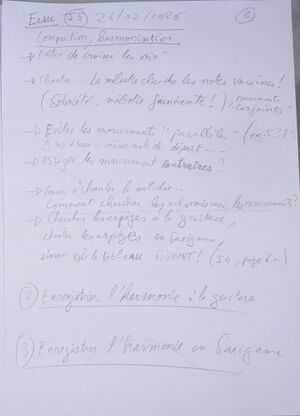 Essai 24/02/2026 ②
Composition, harmonisation
→ Eviter de croiser les voix
→ Chanter... La mélodie cherche les notes voisines!
(Sobriété, mélodie fainéante!) "mouvements conjoints"
→ Eviter les mouvement "parallèles" (ex:
= même note de départ...
→ Essayer les mouvement contraires?
→ à chanter la mélodie...
Comment chercher les notes voisines, les mouvements?
→ Chercher les arpèges à la guitare,
chanter les arpèges en Sargam,
sinon voir le tableau (54, page
② Enregistrer l'harmonie à la guitare
③ Enregistrer l'harmonie en Sargam